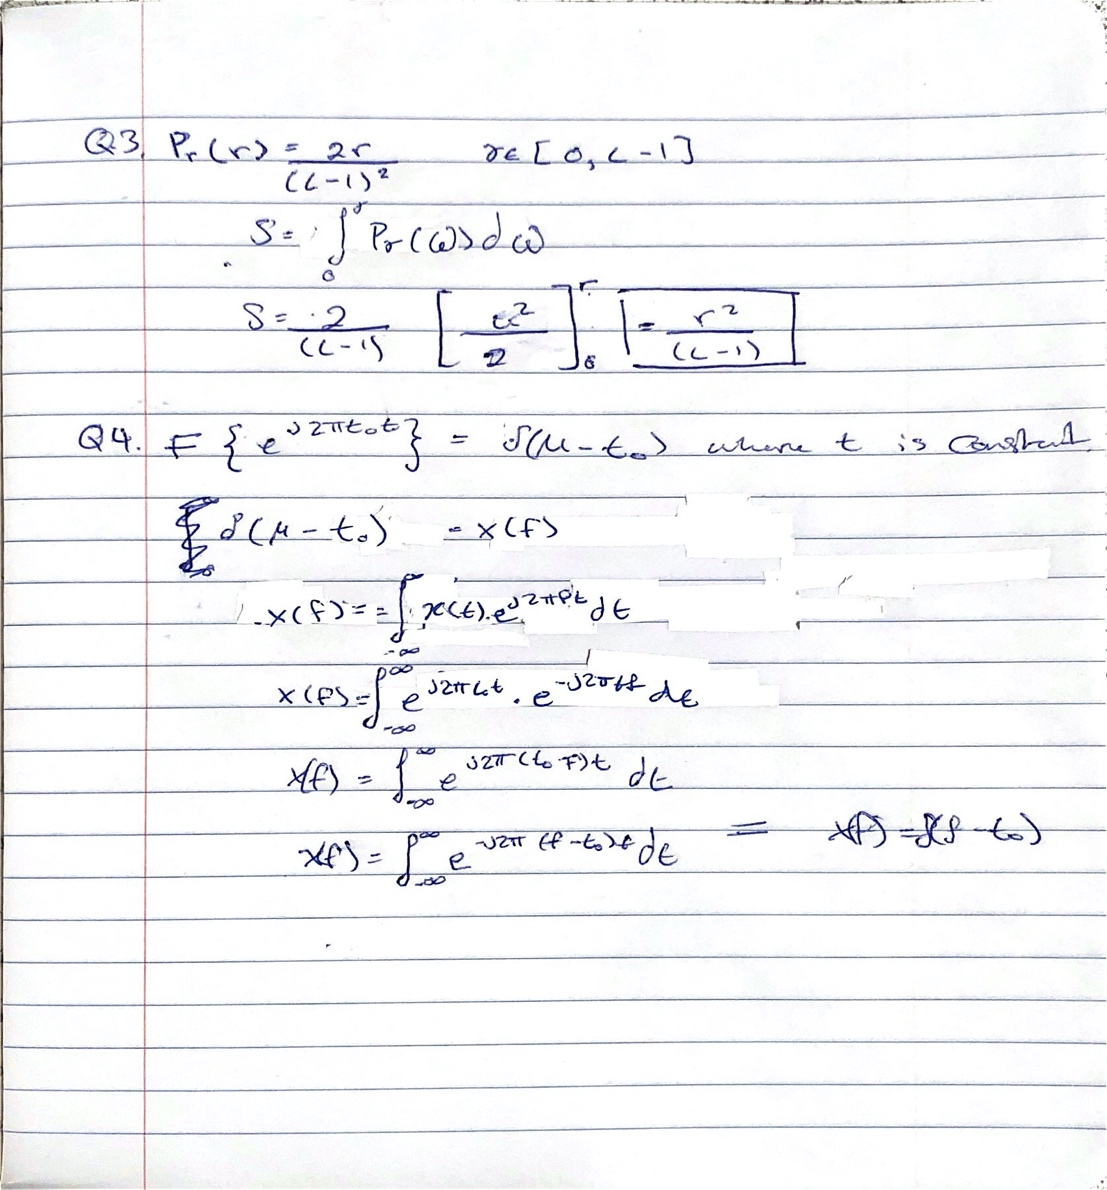 Q3. Pr(r) = 2r/(L-1)² r∈ [0, L-1]
S = ∫₀ʳ Pr(ω)dω
S = 2/(L-1) [ω²/2]₀ʳ = r²/(L-1)
Q4. F {e^(j2πt₀t)} = δ(μ-t₀) where t is constant.
δ(μ-t₀) = x(f)
x(f) = = ∫₋∞^∞ x(t).e^(j2πft) dt
x(f) = ∫₋∞^∞ e^(j2πt₀t) . e^(-j2πtf) dt
x(f) = ∫₋∞^∞ e^(j2π(t₀-f)t) dt
x(f) = ∫₋∞^∞ e^(-j2π(f-t₀)t) dt = x(f) = δ(f-t₀)